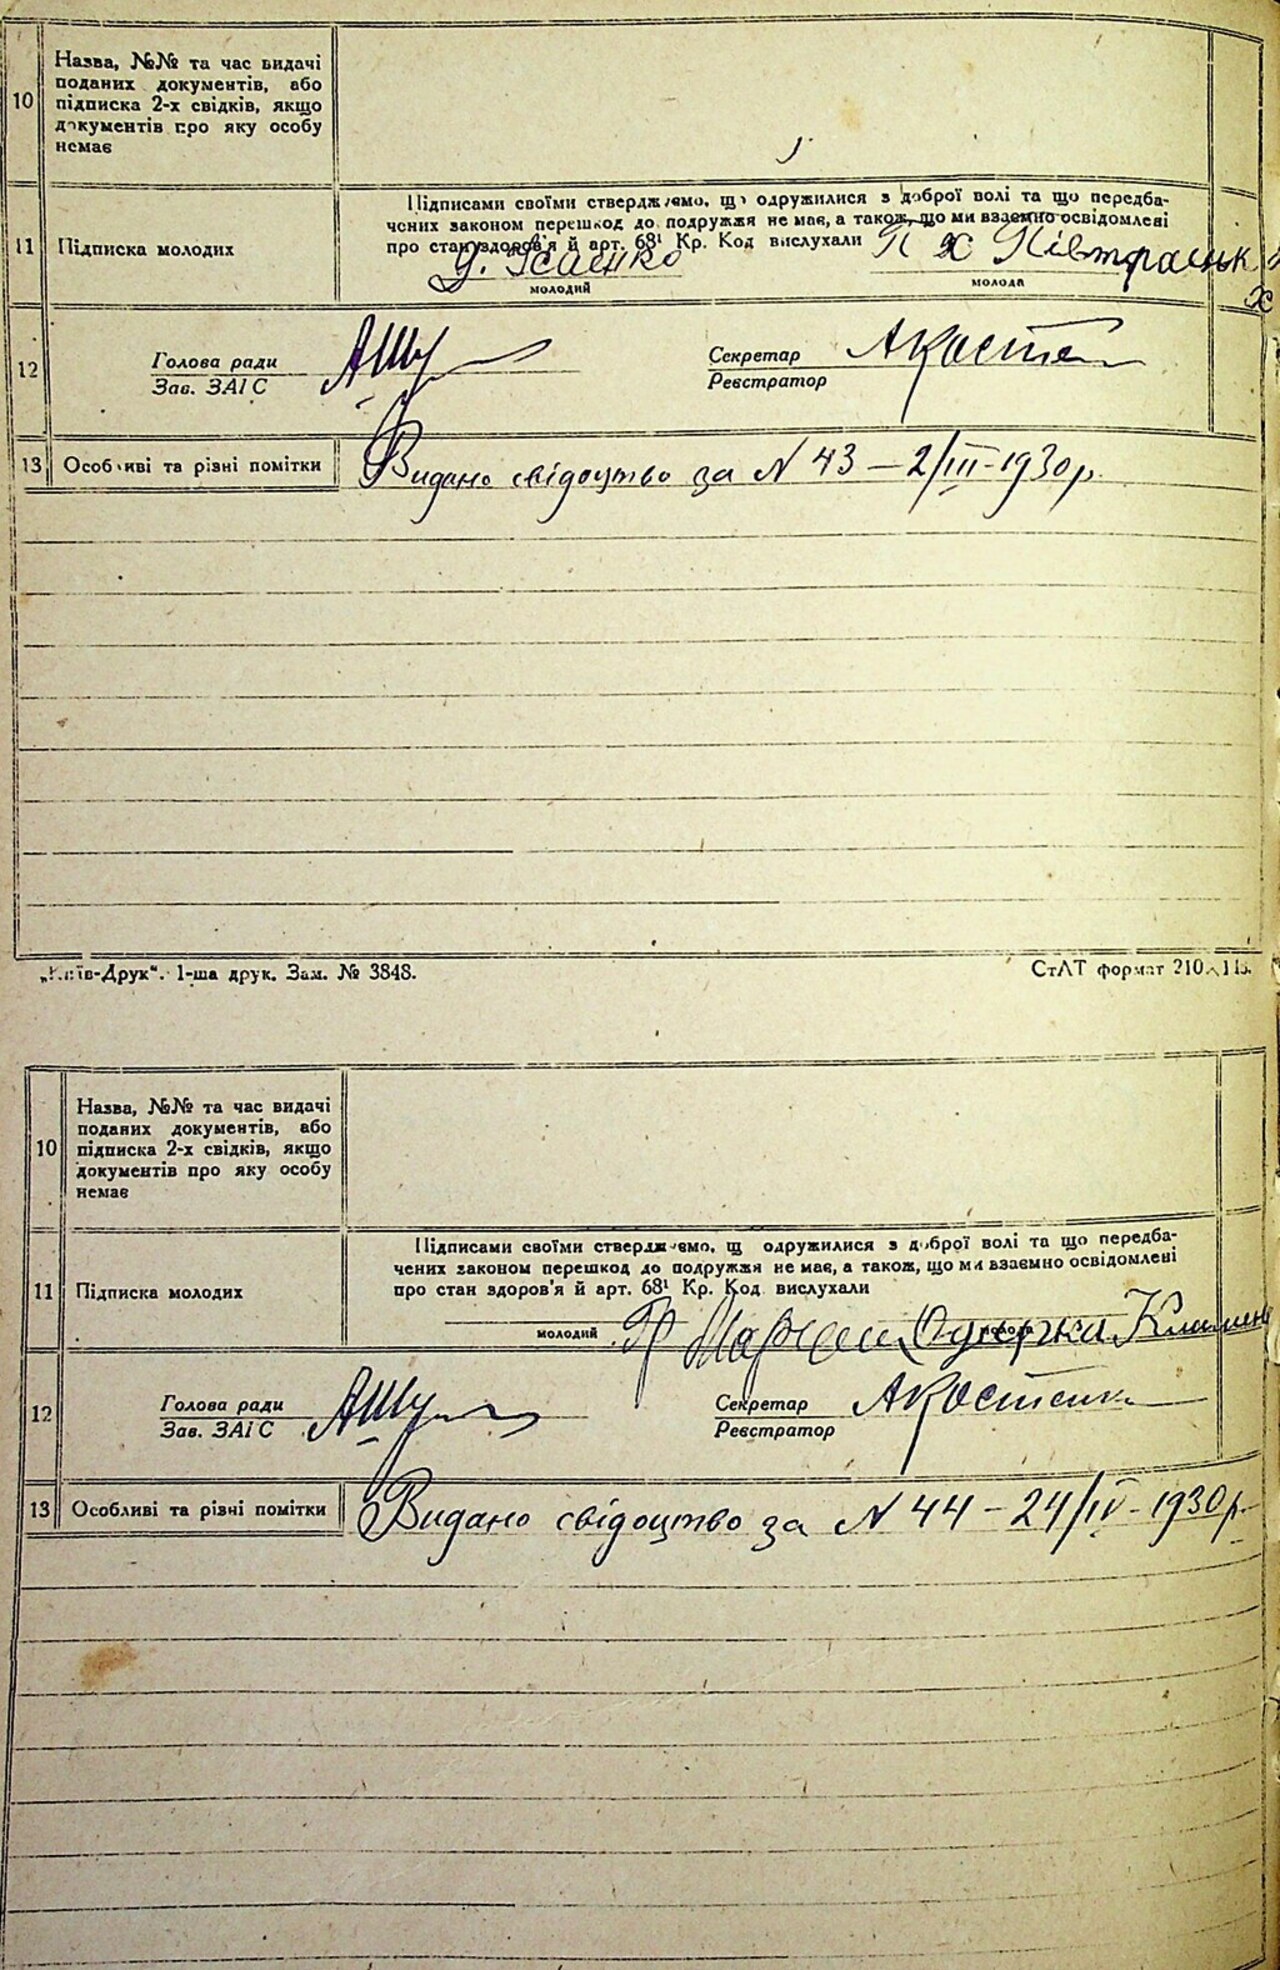 10
Назва, №№ та час видачі
поданих документів, або
підписка 2-х свідків, якщо
документів про яку особу
немає
11
Підписка молодих
Підписами своїми стверджуємо, що одружилися з доброї волі та що передба-
чених законом перешкод до подружжя не має, а також, що ми взаємно освідомлені
про стан здоров'я й арт. 68¹ Кр. Код вислухали
молодий
молода
12
Голова ради
Зав. ЗАГС
Секретар
Реєстратор
АКосте
13
Особливі та різні помітки
Видано свідоцтво за N 43 — 2/III-1930р.
„Київ-Друк". 1-ша друк. Зам. № 3848.
СтАТ формат 210
10
Назва, №№ та час видачі
поданих документів, або
підписка 2-х свідків, якщо
документів про яку особу
немає
11
Підписка молодих
Підписами своїми стверджуємо, що одружилися з доброї волі та що передба-
чених законом перешкод до подружжя не має, а також, що ми взаємно освідомлені
про стан здоров'я й арт. 68¹ Кр. Код вислухали
молодий
молода
12
Голова ради
Зав. ЗАГС
Секретар
Реєстратор
АКостенко
13
Особливі та різні помітки
Видано свідоцтво за N 44 — 24/IV-1930р.